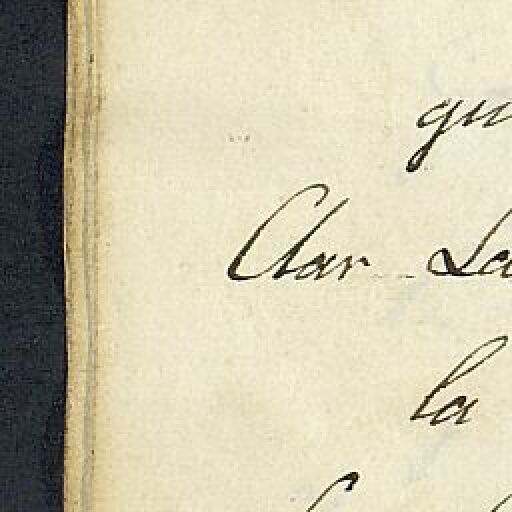 qu
Clar La
la